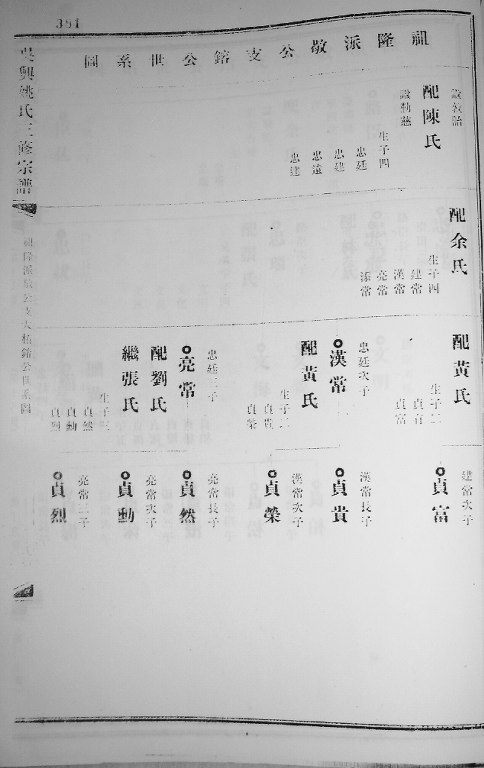 381
吳興姚氏三修宗譜
祖隆派敬公支鎔公世系圖
配陳氏
生子四
忠廷
忠建
忠遠
忠達
配余氏
生子四
建常
漢常
亮常
添常
配黃氏
生子二
貞吉
貞富
建常次子
貞富
忠廷次子
漢常
配黃氏
生子二
貞貴
貞榮
漢常長子
貞貴
漢常次子
貞榮
忠廷三子
亮常
配劉氏
繼張氏
生子三
貞然
貞勳
貞烈
亮常長子
貞然
亮常次子
貞勳
亮常三子
貞烈